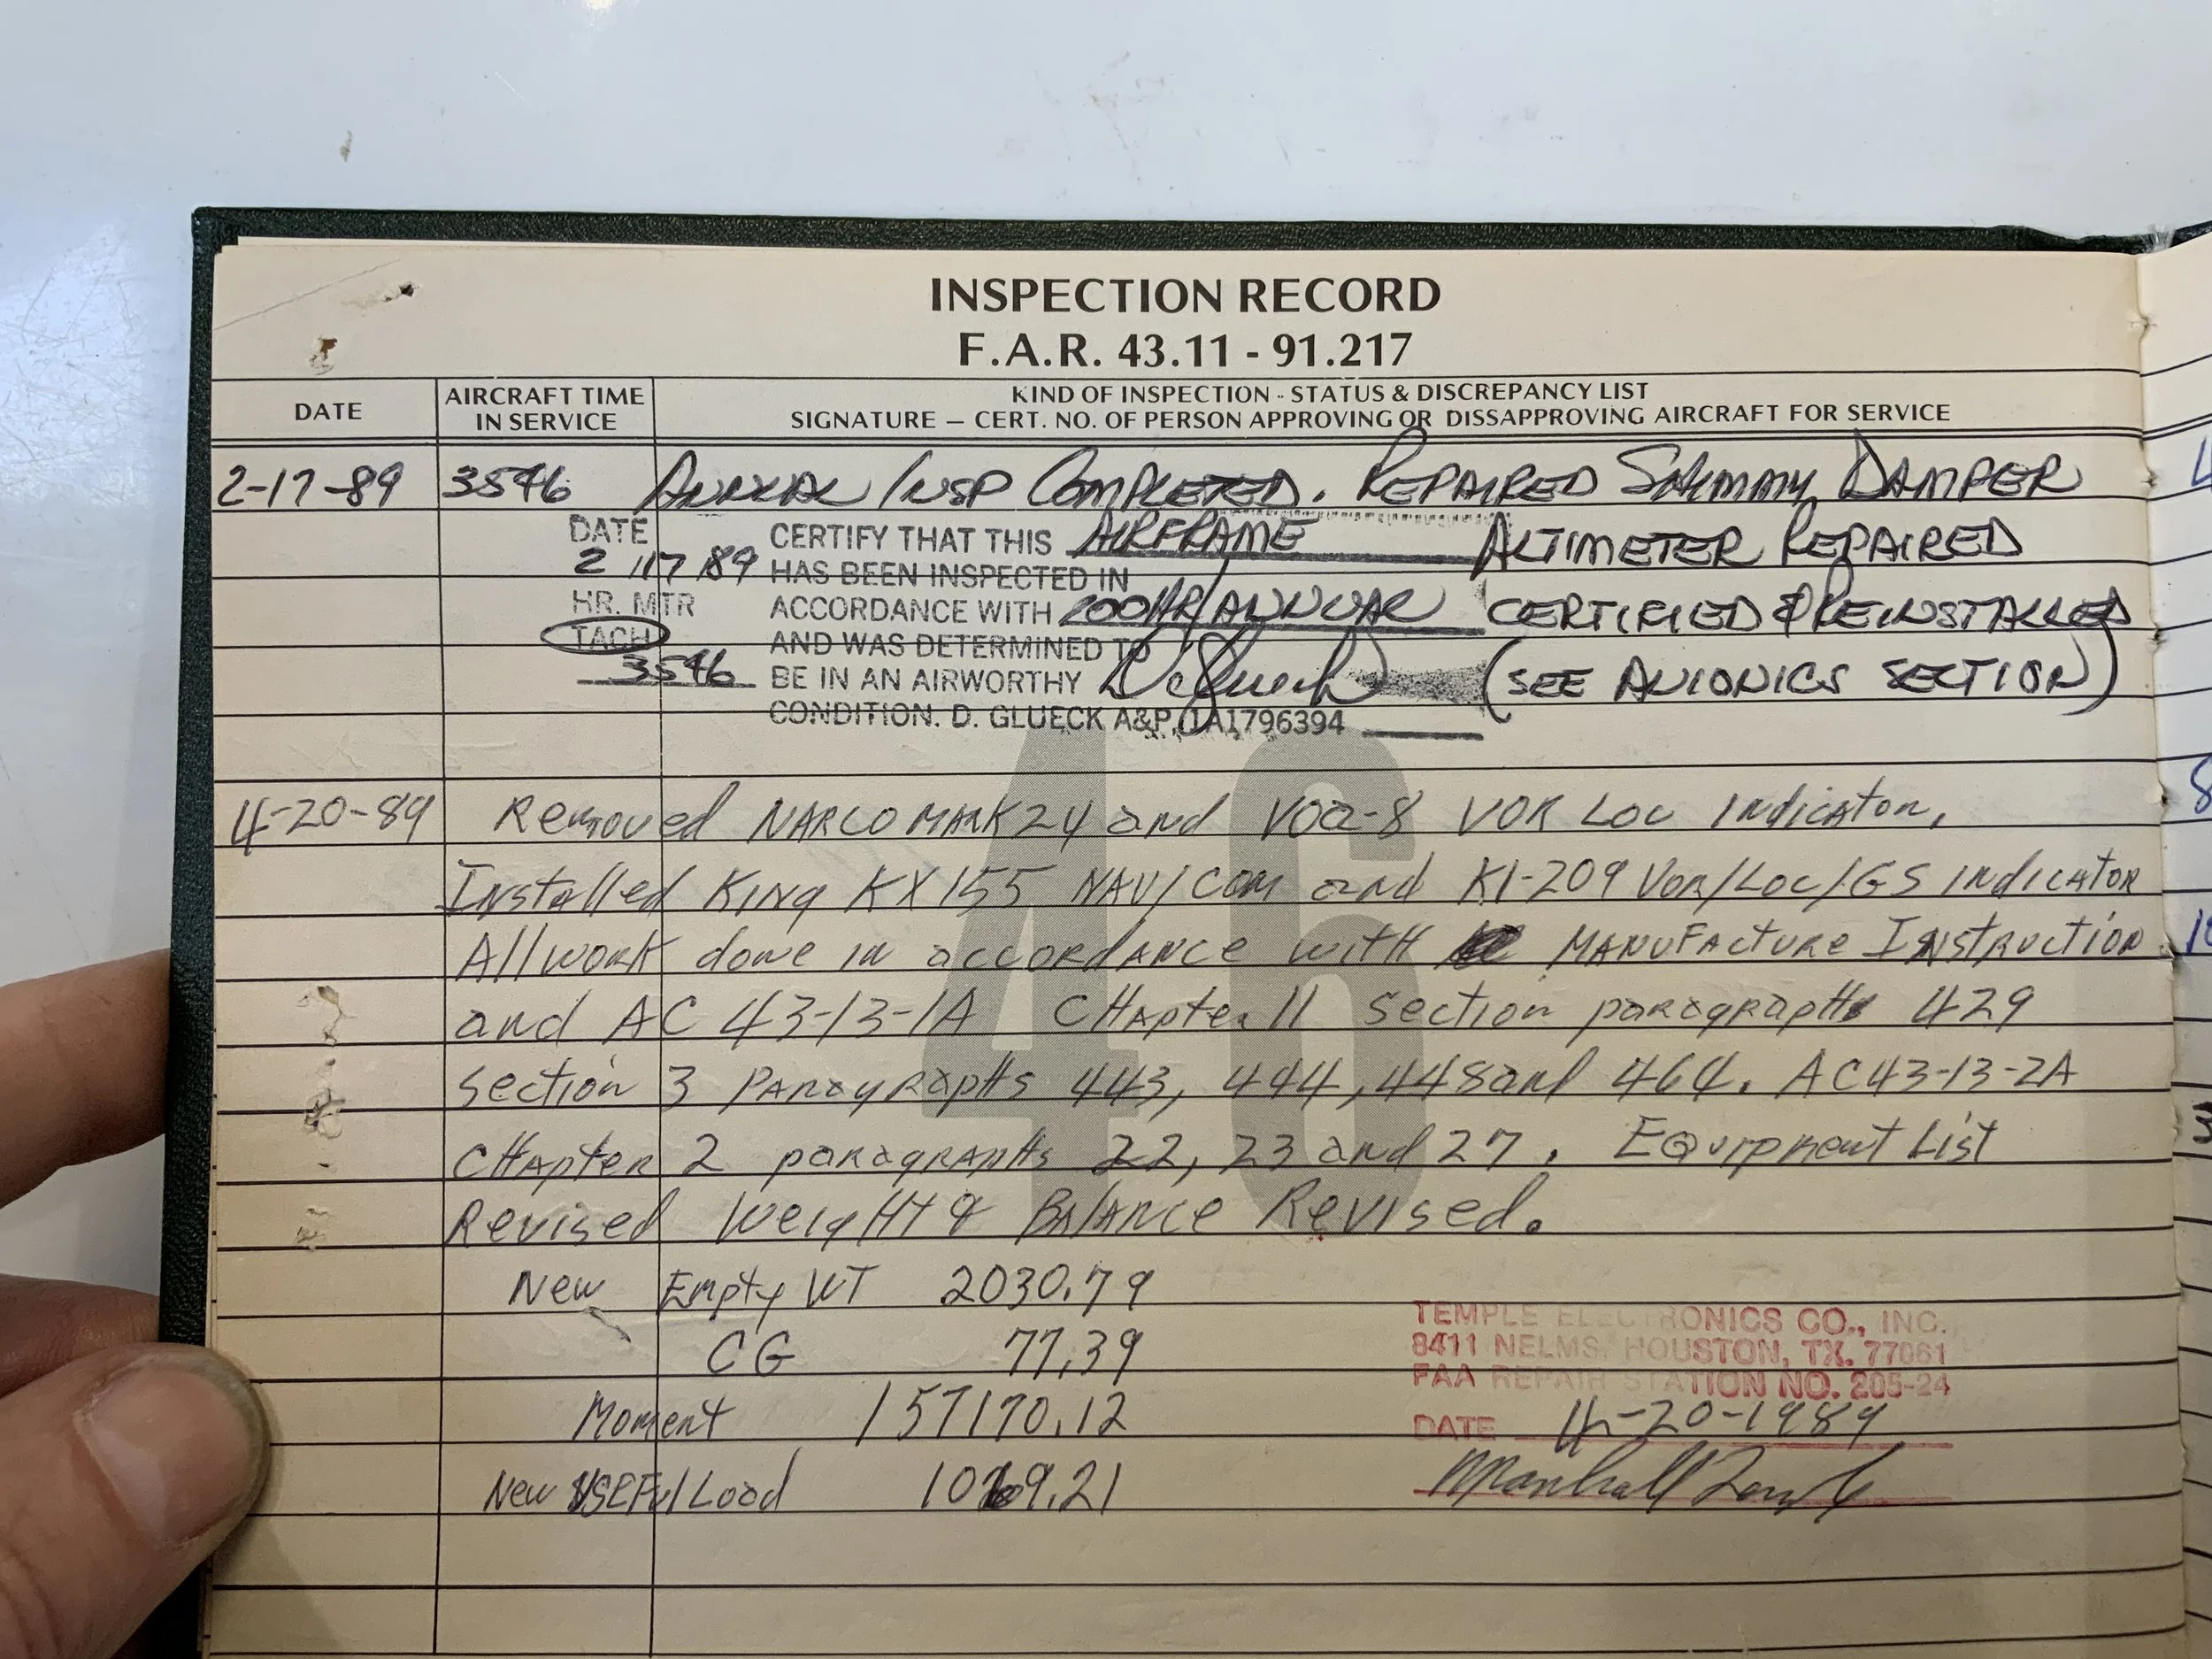 INSPECTION RECORD
F.A.R. 43.11 - 91.217
DATE
AIRCRAFT TIME
IN SERVICE
KIND OF INSPECTION - STATUS & DISCREPANCY LIST
SIGNATURE — CERT. NO. OF PERSON APPROVING OR DISSAPPROVING AIRCRAFT FOR SERVICE
2-17-89 3546 ANNUAL INSP COMPLETED. REPAIRED SHIMMY DAMPER
DATE
2 17 89
HR. MTR
TACH
3546
CERTIFY THAT THIS AIRFRAME
HAS BEEN INSPECTED IN
ACCORDANCE WITH 200HR/ANNUAL
AND WAS DETERMINED TO
BE IN AN AIRWORTHY
CONDITION. D. GLUECK A&P, IA1796394
ALTIMETER REPAIRED
CERTIFIED & REINSTALLED
(SEE AVIONICS SECTION)
46
4-20-89 Removed NARCO MARK 24 and VOA-8 VOR LOC Indicator,
Installed King KX155 NAV/COM and KI-209 VOR/LOC/GS INDICATOR
All work done in accordance with MANUFACTURE INSTRUCTION
and AC 43-13-1A CHapter 11 section paragraphs 429
section 3 Paragraphs 443, 444, 448 and 464. AC43-13-2A
CHapter 2 paragraphs 22, 23 and 27. Equipment List
Revised Weight & Balance Revised.
New Empty WT 2030.79
CG 77.39
Moment 157170.12
New USEFul Load 1069.21
TEMPLE ELECTRONICS CO., INC.
8411 NELMS, HOUSTON, TX. 77061
FAA REPAIR STATION NO. 205-24
DATE 4-20-1989